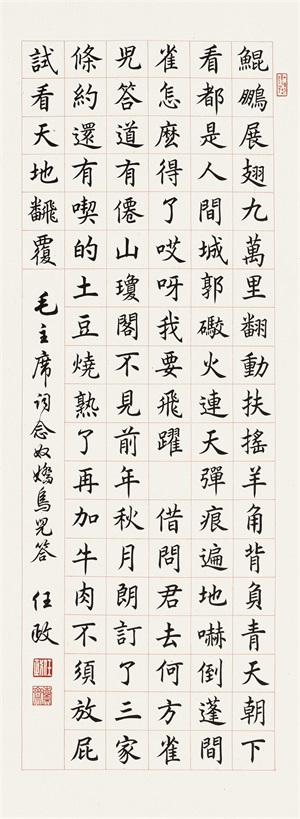 鯤鵬展翅九萬里翻動扶搖羊角背負青天朝下
看都是人間城郭礮火連天彈痕遍地嚇倒蓬間
雀怎麼得了哎呀我要飛躍 借問君去何方雀
兒答道有僊山瓊閣不見前年秋月朗訂了三家
條約還有喫的土豆燒熟了再加牛肉不須放屁
試看天地飜覆 毛主席詞念奴嬌鳥兒答 任政